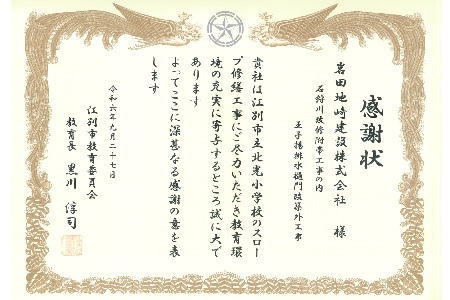 感謝状
岩田地崎建設株式会社 様
石狩川改修附帯工事の内
王子揚排水樋門改築外工事
貴社は江別市立北光小学校のスロー
プ修繕工事にご尽力いただき教育環
境の充実に寄与するところ誠に大で
あります
よってここに深甚なる感謝の意を表
します
令和六年九月二十七日
江別市教育委員会
教育長 黒川 淳司